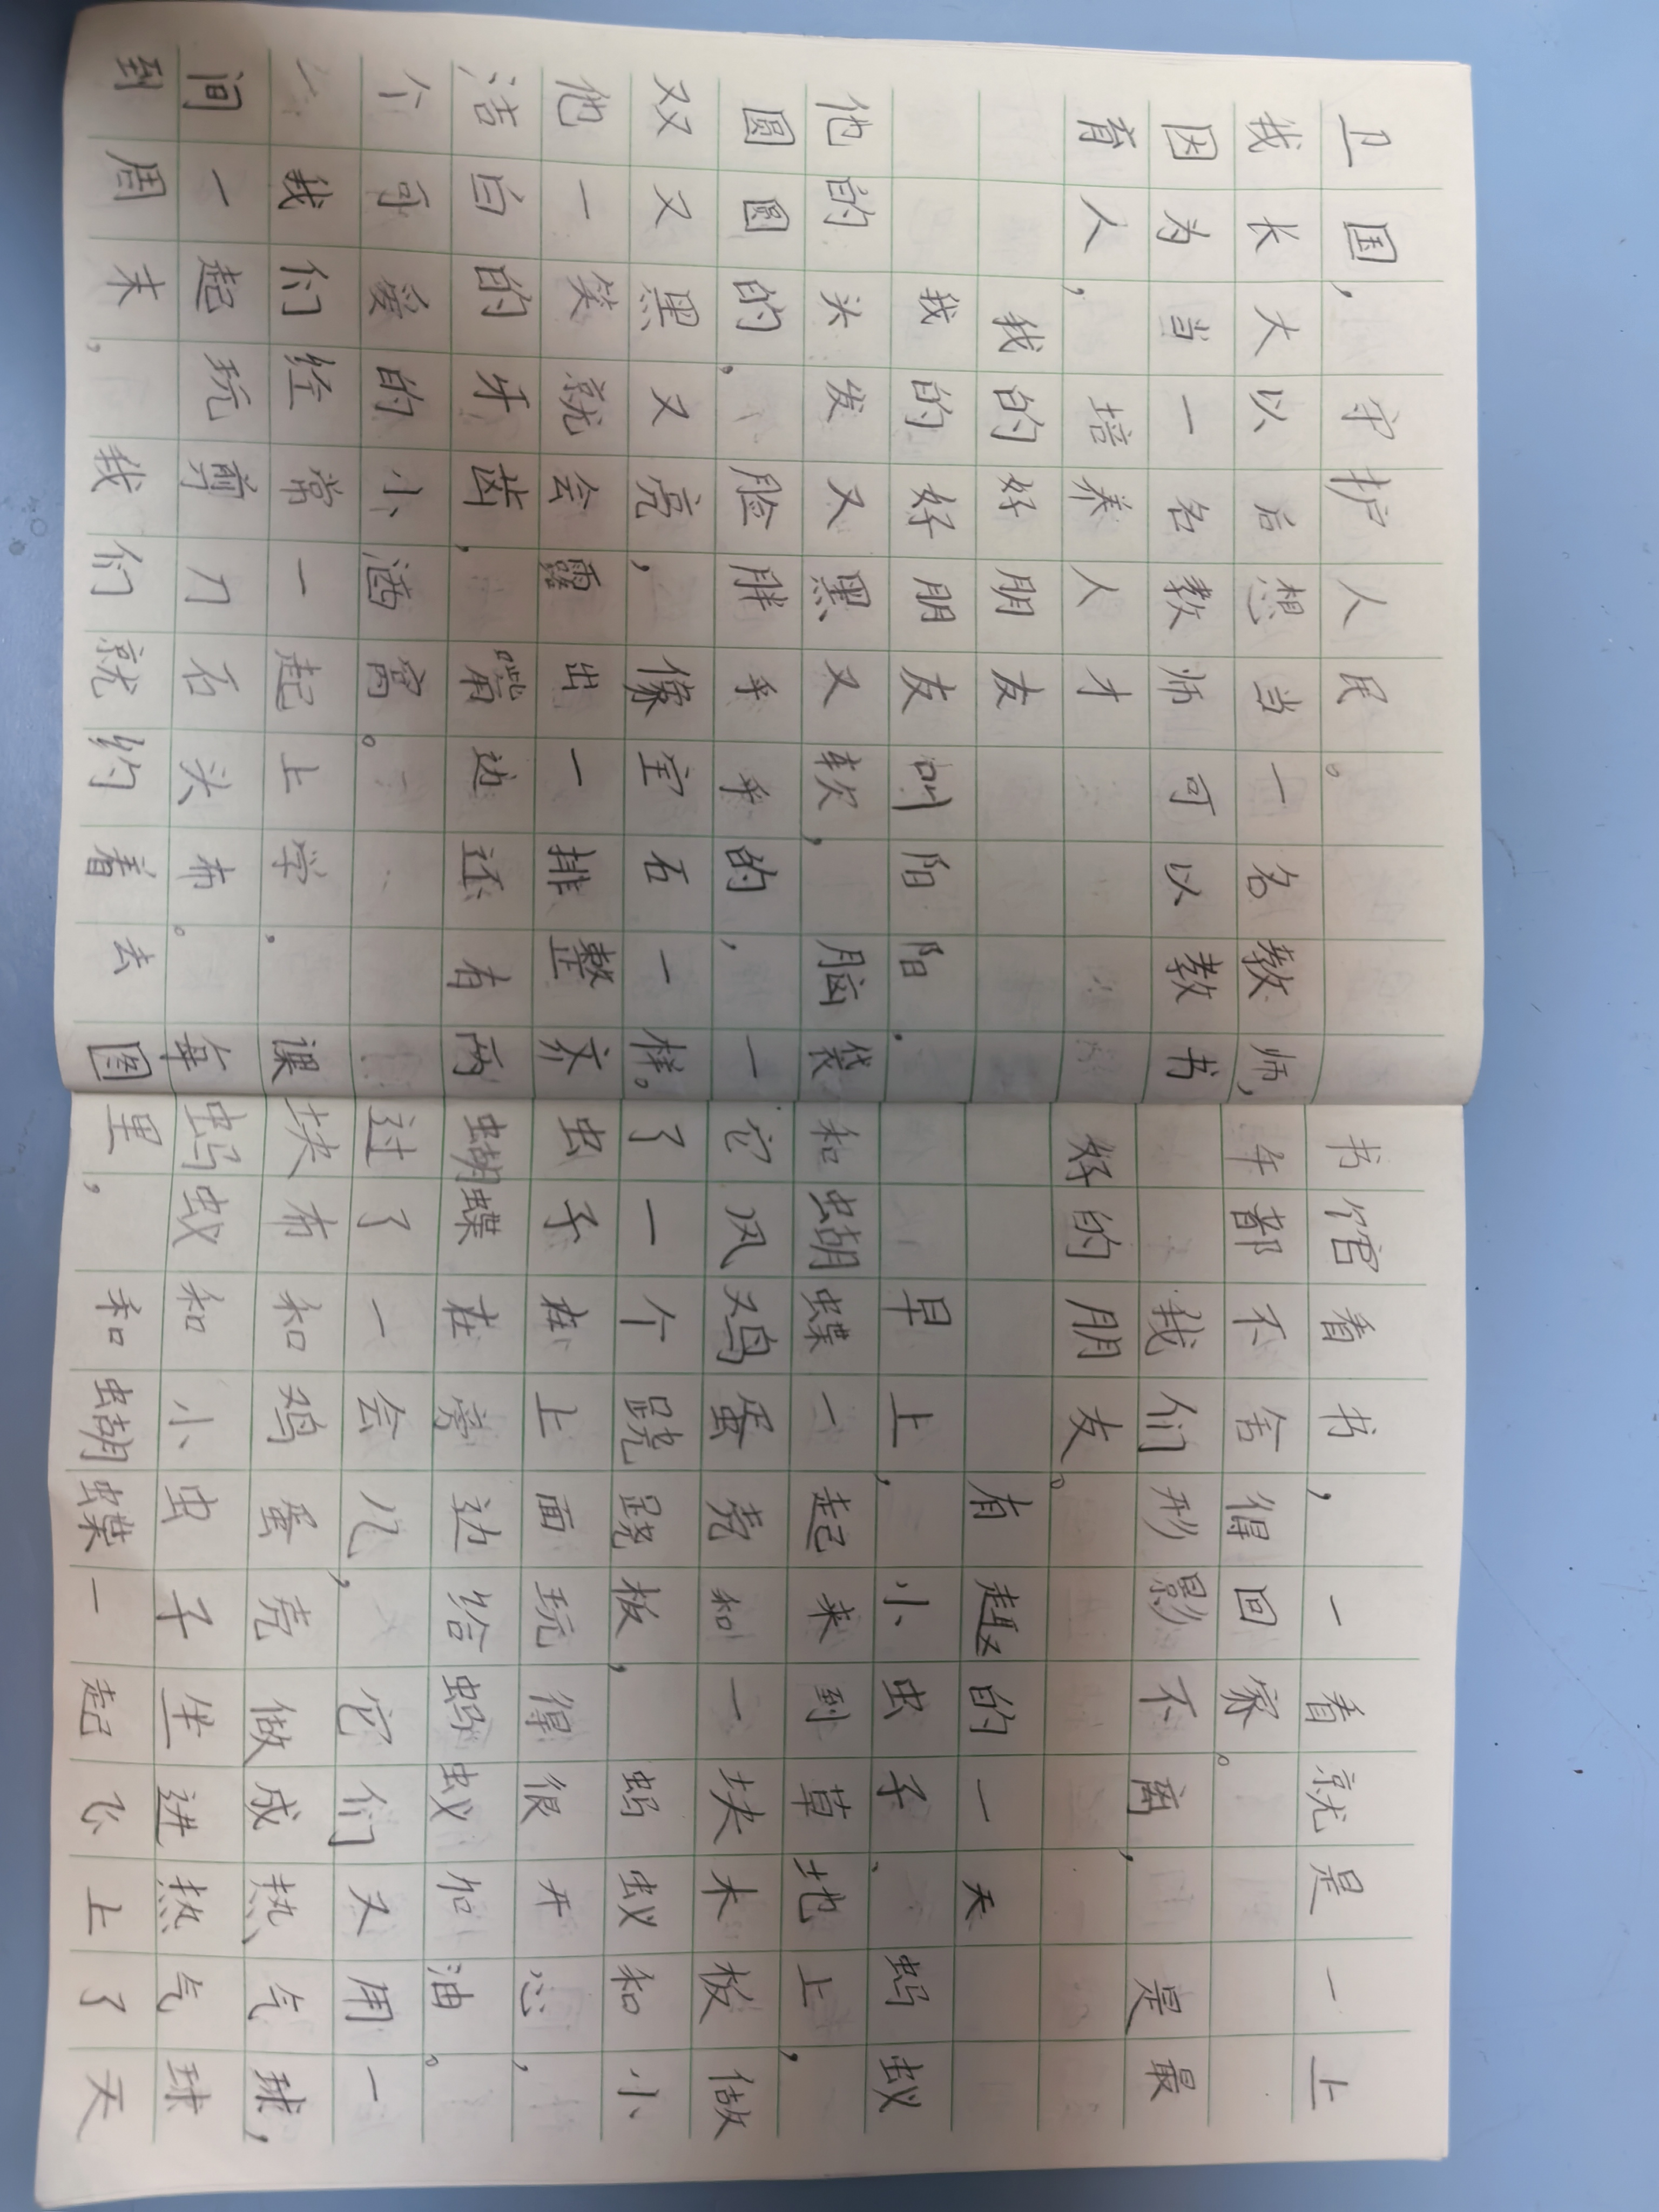 卫国，守护人民。
我长大以后想当一名教师，
因为当一名教师可以教书
育人，培养人才
我的好朋友
我的好朋友叫阳阳.
他的头发又黑又软，脑袋
圆圆的，脸胖乎乎的，一
双又黑又亮，像宝石一样。
他一笑就会露出一排整齐
洁白的牙齿，嘴边还有两
个可爱的小酒窝。
我们经常一起上学，课
间一起玩剪刀石头布。每
到周末，我们就约着去图
书馆看书，一看就是一上
午都不舍得回家。
我们形影不离，是最
好的朋友。
有趣的一天
早上，小虫子、蚂蚁
和蝴蝶一起来到草地上，
它风鸡蛋壳和一块木板做
了一个跷跷板，蚂蚁和小
虫子在上面玩得很开心，
蝴蝶在旁边给蚂蚁加油。
过了一会儿，它们又用一
块布和鸡蛋壳做成热气球，
蚂蚁和小虫子坐进热气球
里，和蝴蝶一起飞上了天